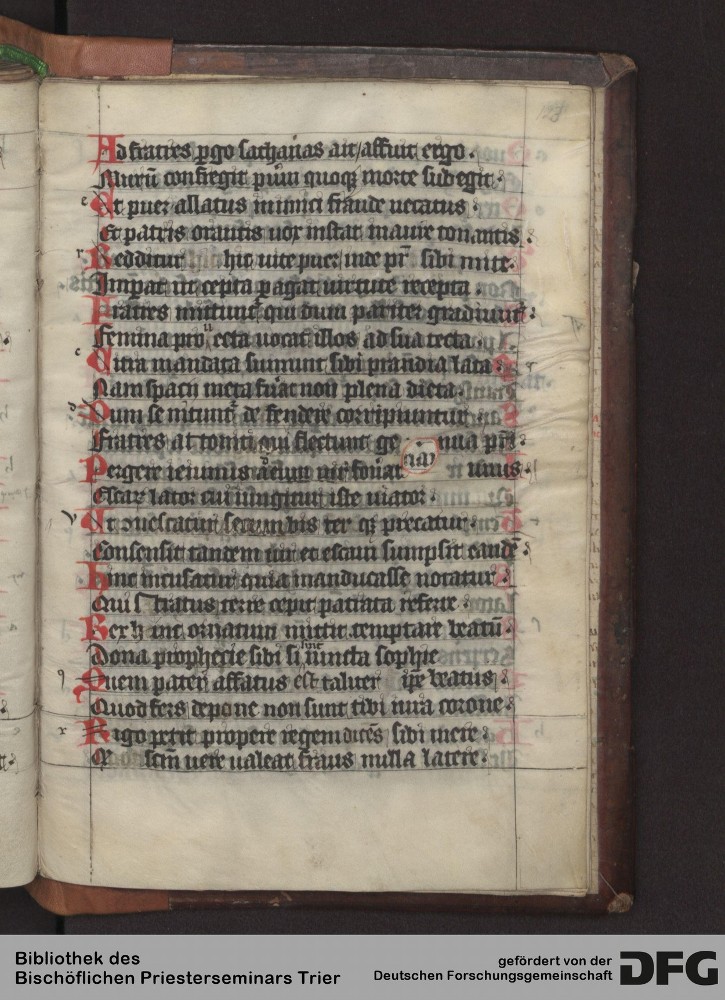 123
Ad fratres pgo sathanas ait affuit ergo.
Murū confregit puūm quoqz morte subegit.
Et puer allatus inimici fraude necatus
Et patris orantis uox instat in aure tonantis.
Redditur hic uite puer inde pr̄ sibi mite.
Imperat ut cepta pagat uirtute recepta.
Fratres mittunt᷑ qui dum pariter gradiunt᷑
Femina prouecta uocat illos ad sua tecta.
Citra mandata sumunt sibi prandia lata
Nam spacii meta fuat non plena dieta.
Dum se nitunt᷑ defendere corripiuntur
Fratres attoniti qui flectunt genua pr̄i
Pergere ieiunus uir fouat unus
Escar lator cui iungitur iste uiator.
Ut uescatur secum bis ter qz precatur.
Consensit tandem uir et escam sumpsit eandē
Hinc incusatur quia manducasse notatur
Qui stratus terre cepit patrata referre
Rex hinc ornatum mittit temptare beatū.
Dona prophetie sibi si sunt iuncta sophie
Quem pater affatus est taliter ipe beatus
Quod fers depone non sunt tibi iura corone
Rigo petit propere regem dicēs sibi uere
Q stm uere ualeat fraus nulla latere.
Bibliothek des
Bischöflichen Priesterseminars Trier
gefördert von der
Deutschen Forschungsgemeinschaft
DFG